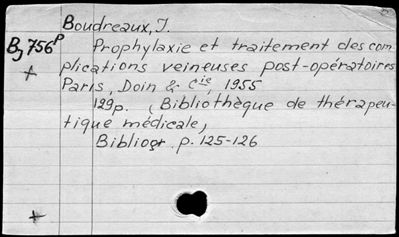 Boudreaux, J.
Bj 756P
Prophylaxie et traitement des com
plications veineuses post-opératoires
Paris, Doin & Cie, 1955
129p. (Bibliothèque de thérapeu-
tique médicale,
Bibliogr. p. 125-126